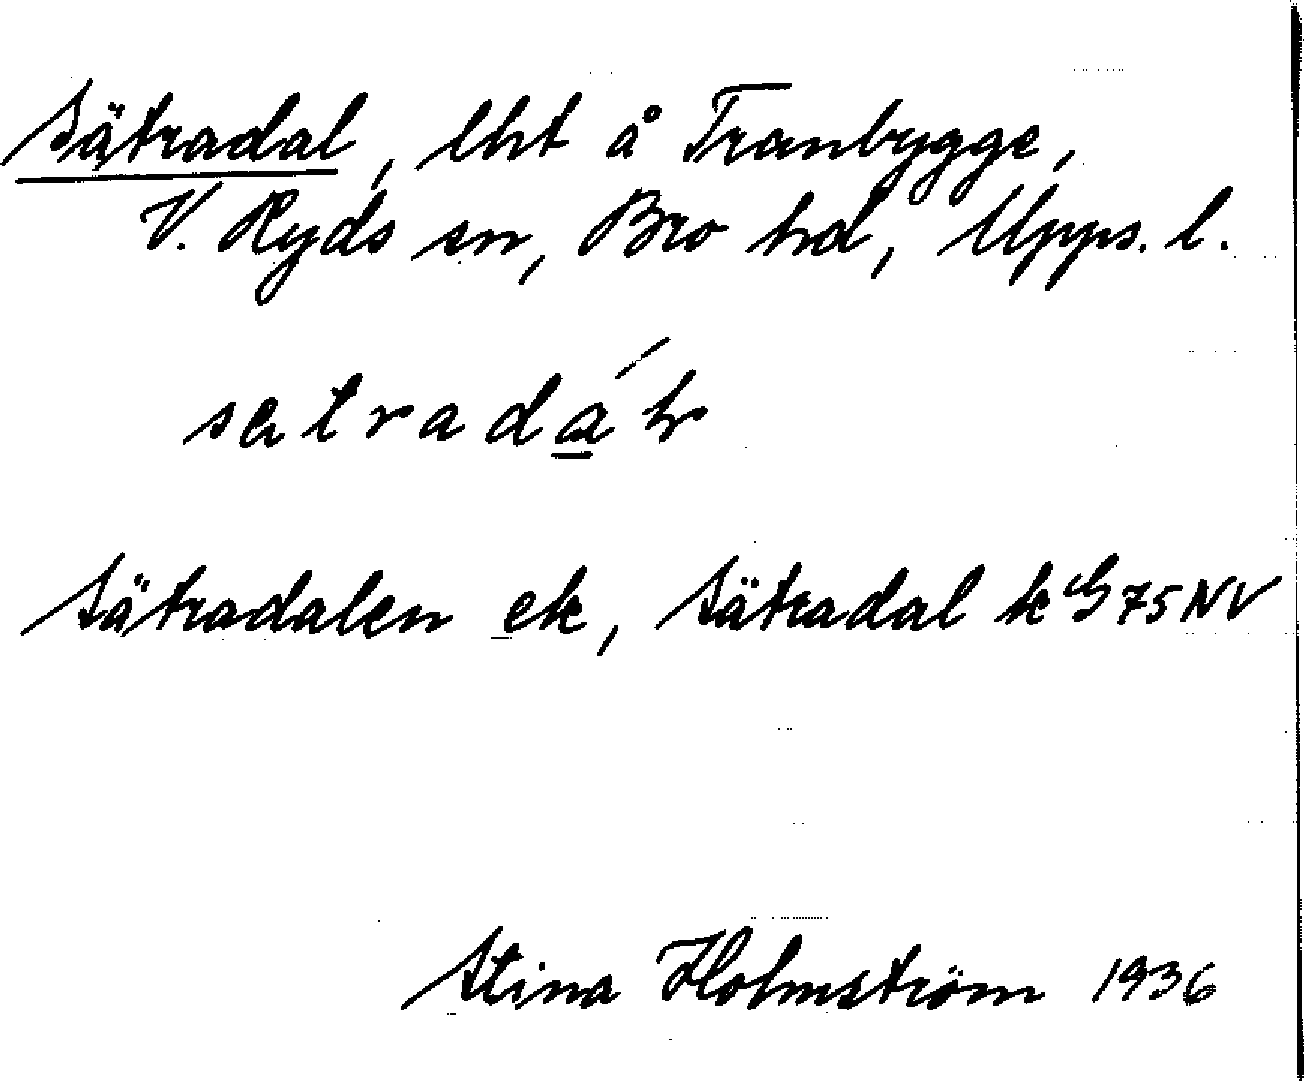 Sätradal, lht å Tranbygge,
V. Ryds sn, Bro hd, Upps. l.
Sätradalen ek, Sätradal k G 75 NV
Stina Holmström 1936